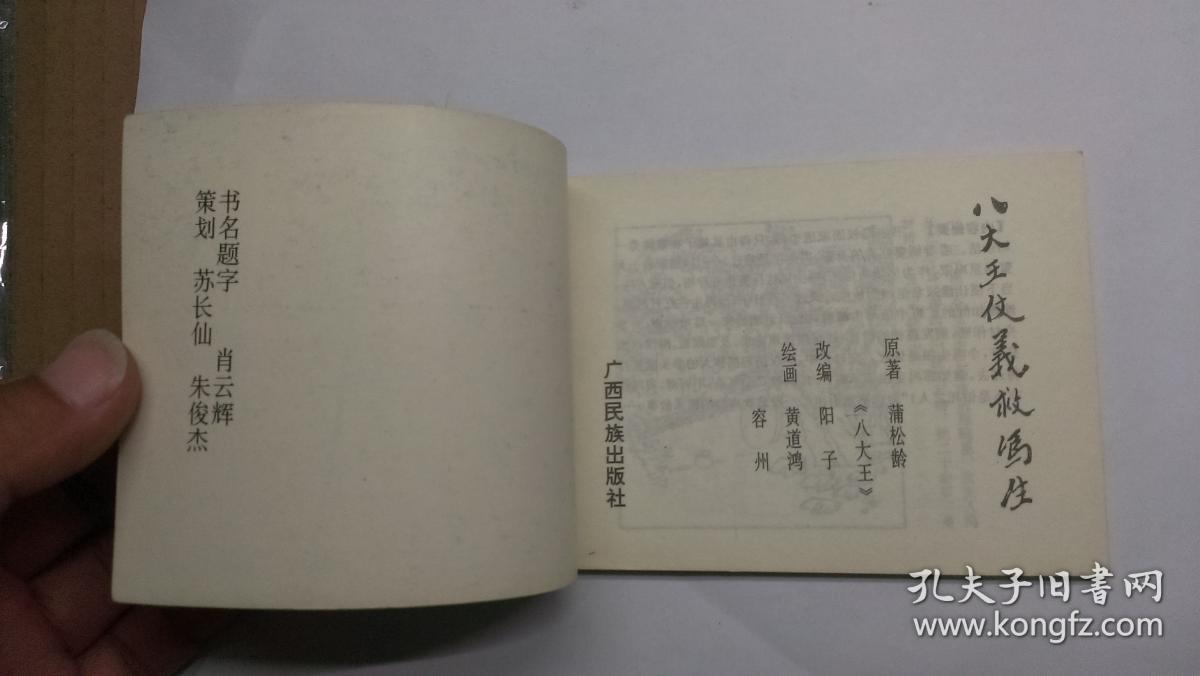 书名题字 肖云辉
策划 苏长仙 朱俊杰
八大王仗義救馮生
原著 蒲松龄
《八大王》
改编 阳子
绘画 黄道鸿
容州
广西民族出版社
孔夫子旧书网
www.kongfz.com